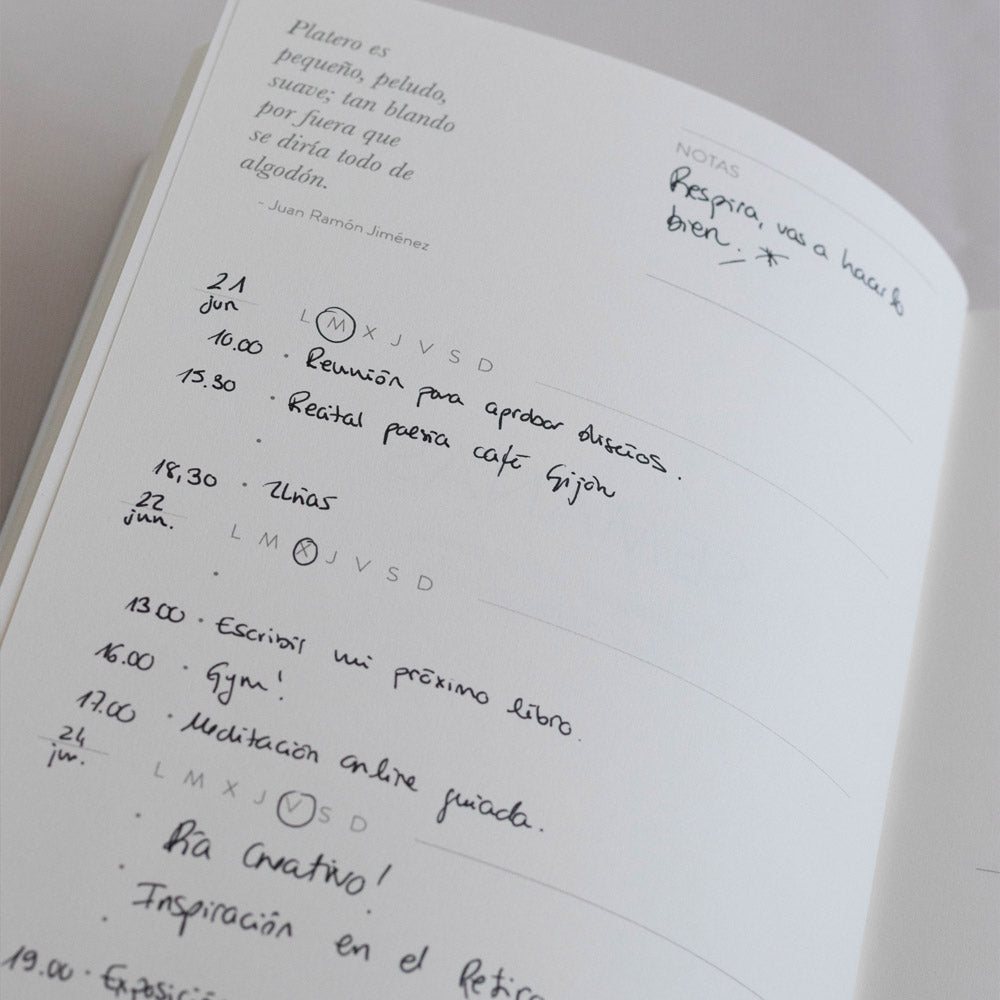 Platero es
pequeño, peludo,
suave; tan blando
por fuera que
se diría todo de
algodón.
- Juan Ramón Jiménez
NOTAS
Respira, vas a hacerlo
bien. *
21
jun
L M X J V S D
10.00 · Reunión para aprobar diseños.
15.30 · Recital poesía café Gijón
·
18,30 · Uñas
22
jun.
L M X J V S D
·
13.00 · Escribir mi próximo libro.
16.00 · Gym!
17.00 · Meditación online guiada.
24
jun.
L M X J V S D
· Día Creativo!
· Inspiración en el Retiro
·
19.00 · Exposición